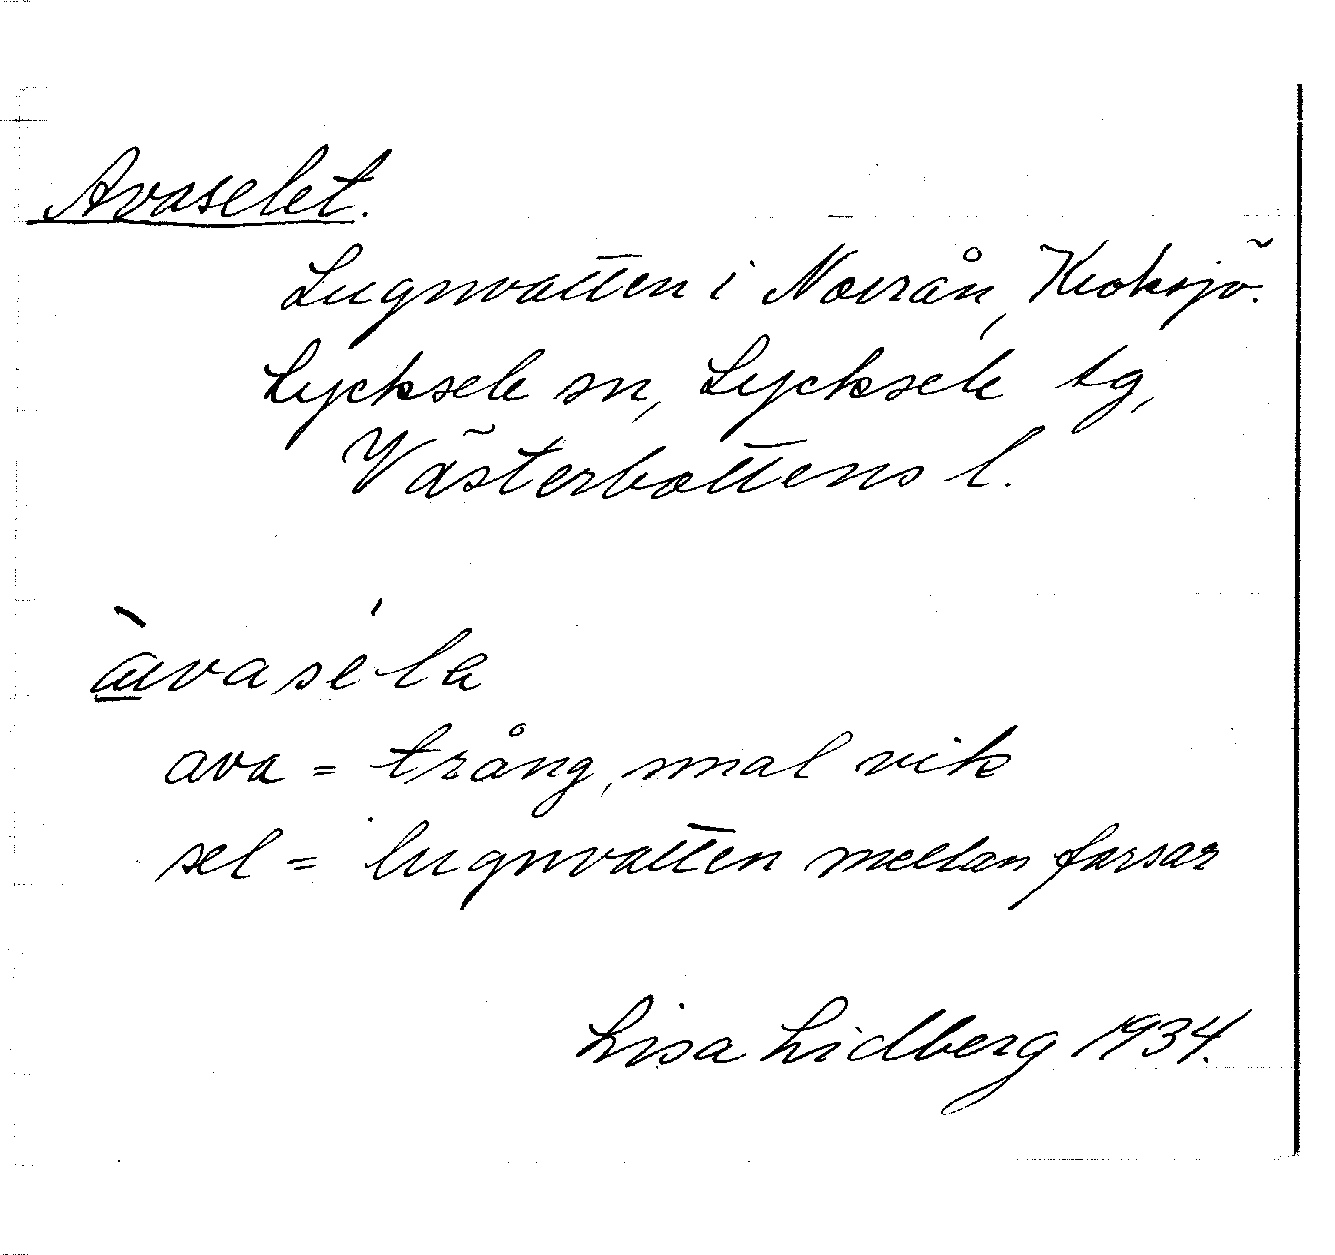 Avaselet.
Lugnvatten i Norrån, Kroksjö.
Lycksele sn, Lycksele tg,
Västerbottens l.
àvasé´la
ava = trång, smal vik
sel = lugnvatten mellan forsar
Lisa Lidberg 1934.